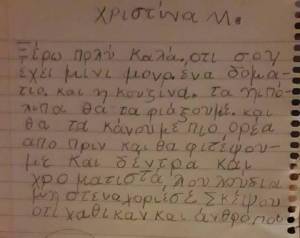 Χριστίνα Μ.
Ξέρω πολύ καλά. οτι σου
έχει μίνι μονο. ένα δομα-
τιο. και η κουζίνα. τα ηπό-
λιπα θα τα φιάξουμε. και
θα τα κάνουμε πιο ορέα
απο πριν και θα φιτέψου-
με και δέντρα και
χρο ματιστά, λου λούδια
μη στεναχοριέσε. Σκέψου
οτι χαθικαν και άνθροποι